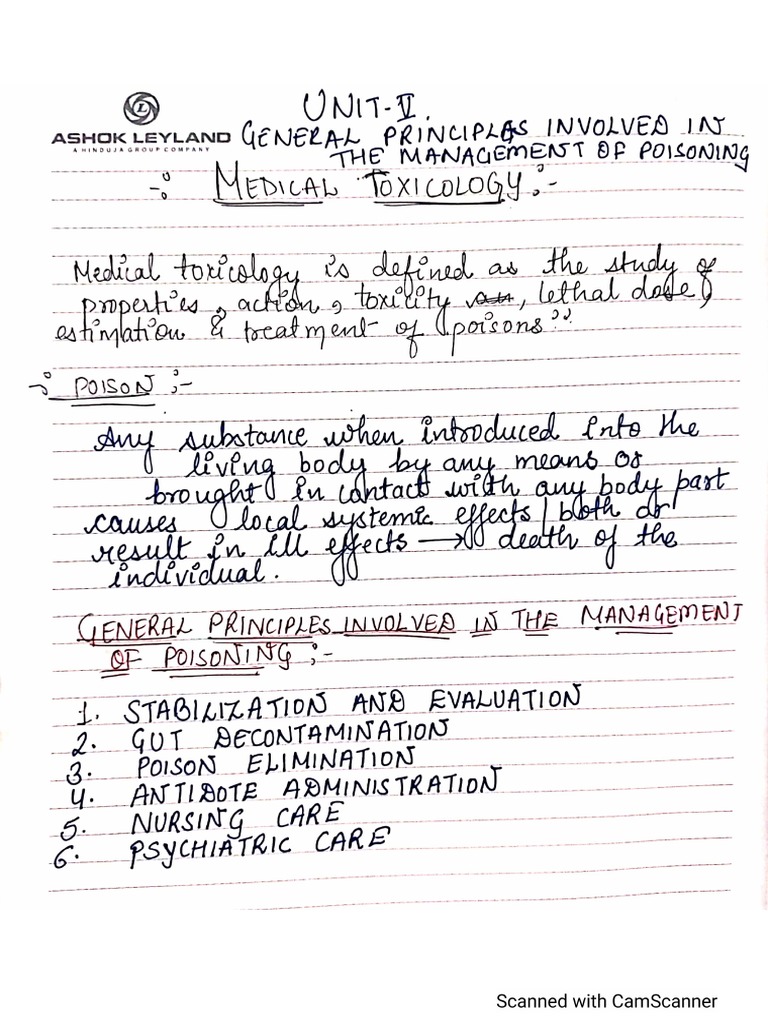 UNIT-V.
ASHOK LEYLAND
A HINDUJA GROUP COMPANY
GENERAL PRINCIPLES INVOLVED IN
THE MANAGEMENT OF POISONING
-: MEDICAL TOXICOLOGY:-
Medical toxicology is defined as the study of
properties, action, toxicity, lethal dose,
estimation & treatment of poisons".
-: POISON :-
Any substance when introduced into the
living body by any means or
brought in contact with any body part
causes local systemic effects / both or
result in ill effects → death of the
individual.
GENERAL PRINCIPLES INVOLVED IN THE MANAGEMENT
OF POISONING :-
1. STABILIZATION AND EVALUATION
2. GUT DECONTAMINATION
3. POISON ELIMINATION
4. ANTIDOTE ADMINISTRATION
5. NURSING CARE
6. PSYCHIATRIC CARE
Scanned with CamScanner